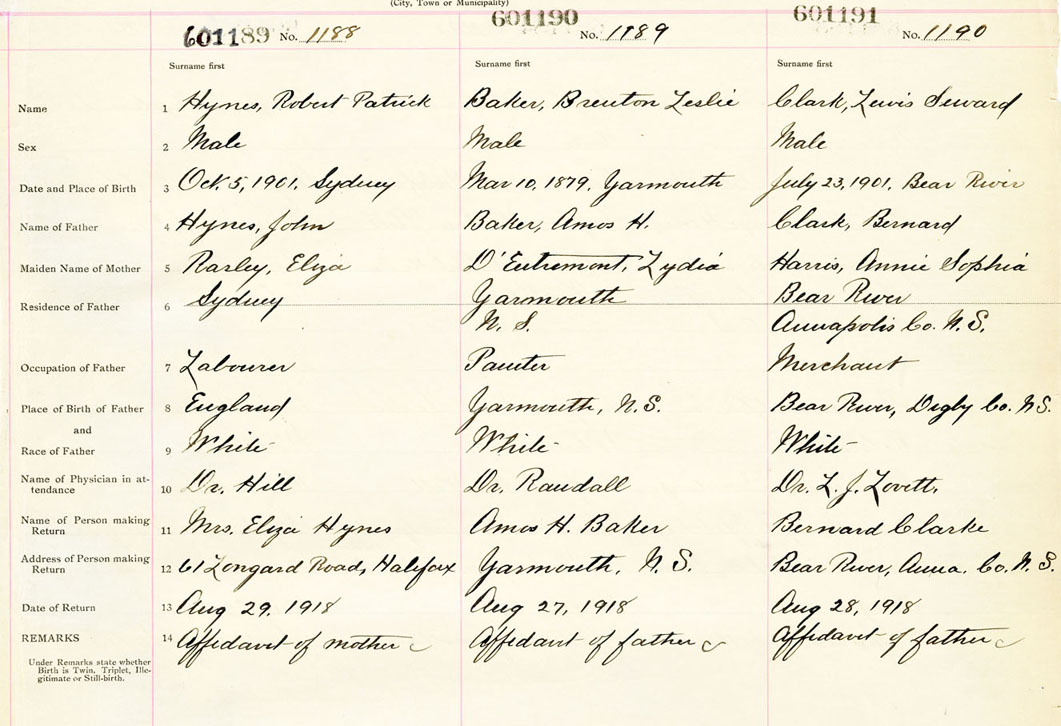 (City, Town or Municipality)
601189 No. 1188 601190 No. 1189 601191 No. 1190
Surname first Surname first Surname first
Name 1 Hynes, Robert Patrick Baker, Brenton Leslie Clark, Lewis Seward
Sex 2 Male Male Male
Date and Place of Birth 3 Oct. 5, 1901. Sydney Mar 10, 1879. Yarmouth July 23, 1901. Bear River
Name of Father 4 Hynes, John Baker, Amos H. Clark, Bernard
Maiden Name of Mother 5 Rarley, Eliza D'Entremont, Lydia Harris, Annie Sophia
Residence of Father 6 Sydney Yarmouth Bear River
N. S. Annapolis Co. N.S.
Occupation of Father 7 Labourer Painter Merchant
Place of Birth of Father 8 England Yarmouth, N.S. Bear River, Digby Co. N.S.
and
Race of Father 9 White White White
Name of Physician in at-
tendance 10 Dr. Hill Dr. Randall Dr. L. J. Lovett.
Name of Person making
Return 11 Mrs. Eliza Hynes Amos H. Baker Bernard Clarke
Address of Person making
Return 12 61 Longard Road, Halifax Yarmouth, N.S. Bear River, Anna. Co. N.S.
Date of Return 13 Aug 29, 1918 Aug 27, 1918 Aug 28, 1918
REMARKS 14 Affidavit of mother Affidavit of father Affidavit of father
Under Remarks state whether
Birth is Twin, Triplet, Ille-
gitimate or Still-birth.